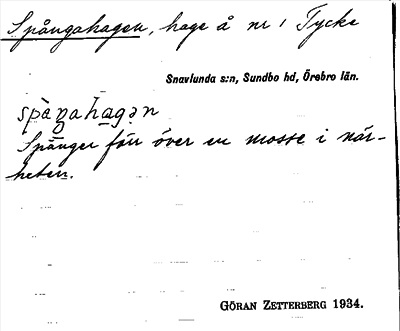 Spångahagen, hage å nr 1 Tycke
Snavlunda s:n, Sundbo hd, Örebro län.
spàŋahagən
Spänger förr över en mosse i när-
heten.
GÖRAN ZETTERBERG 1934.